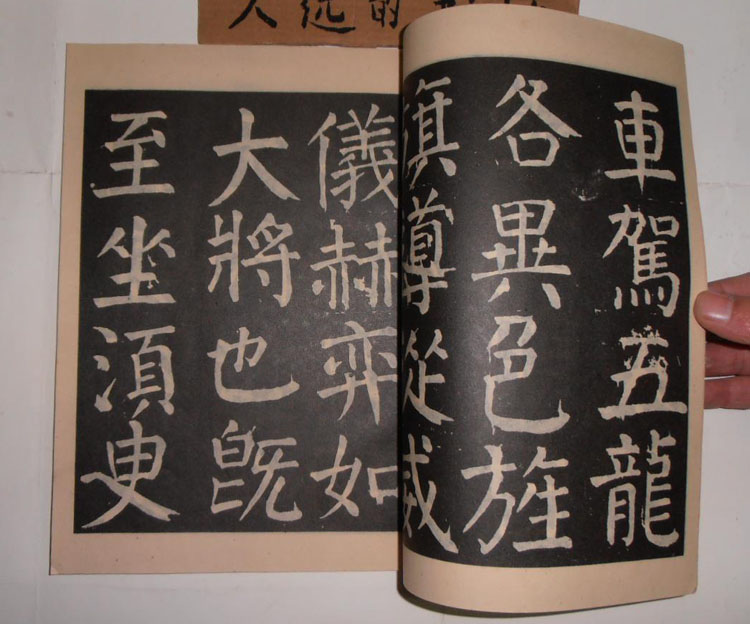 車駕五龍
各異色旌
旗導從威
儀赫弈如
大將也既
至坐須臾